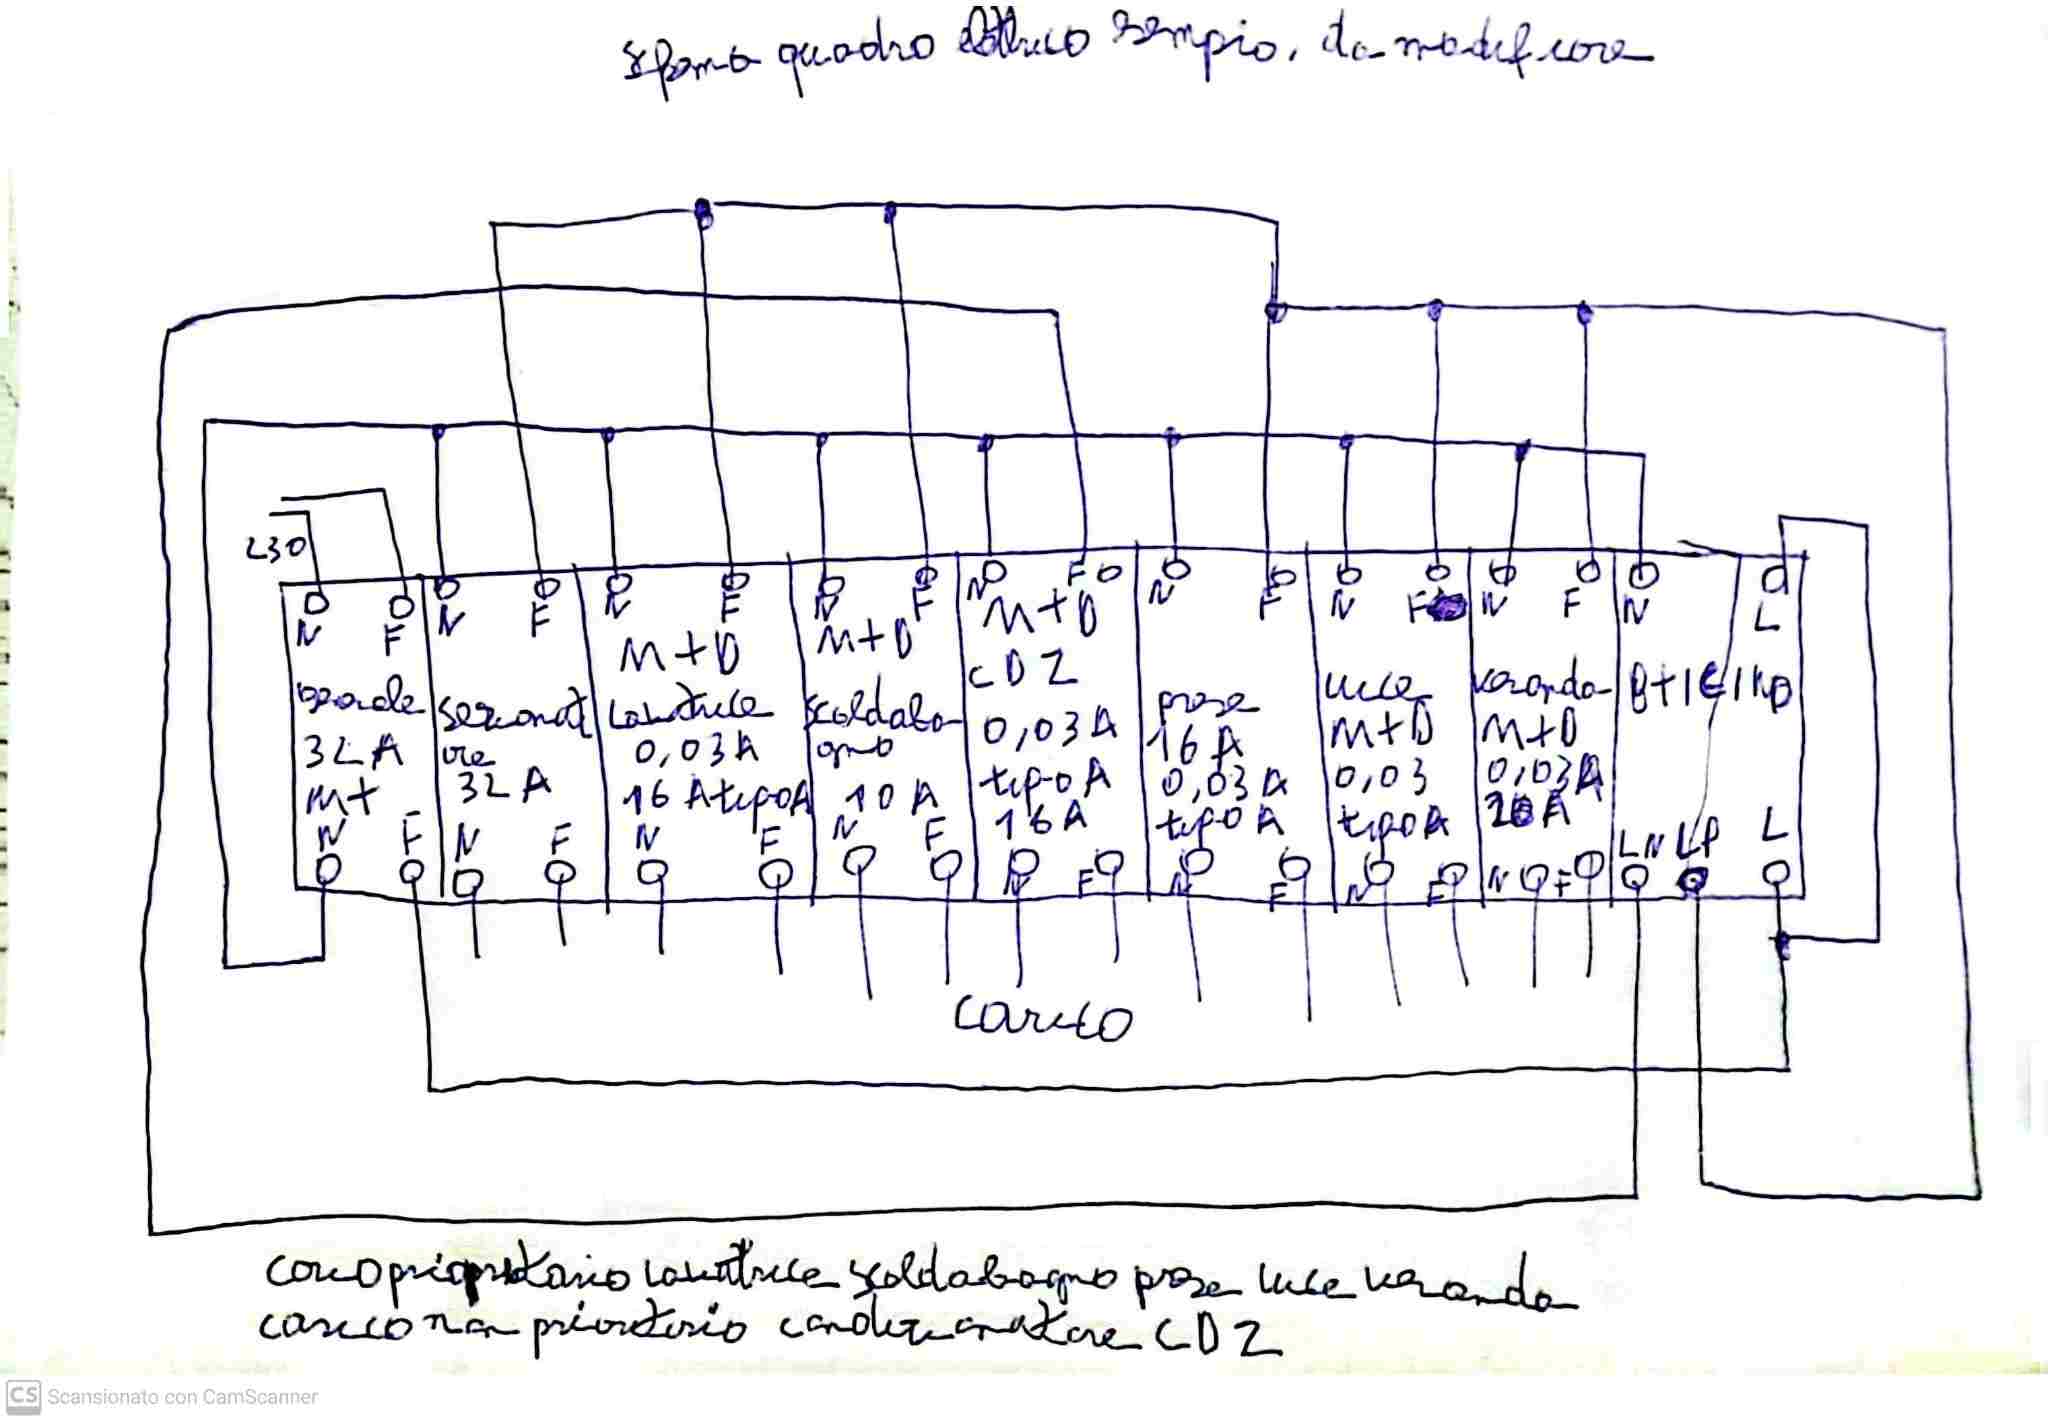 quadro elettrico sempio, da modificare
230
N F N F N F N F N F N F N F N F N L
M+D M+D M+D
CDZ
generale
32A
MT
sezionat
ore
32A
lavatrice
0,03A
16A tipo A
scaldaba
gno
10A
0,03A
tipo A
16A
prese
16A
0,03A
tipo A
luce
M+D
0,03
tipo A
veranda
M+D
0,03A
A
N F N F N F N F N F N F N F N F LN LP L
carico
carico lavatrice scaldabagno prese luce veranda
carico non prioritario condizionatore CDZ
CS Scansionato con CamScanner